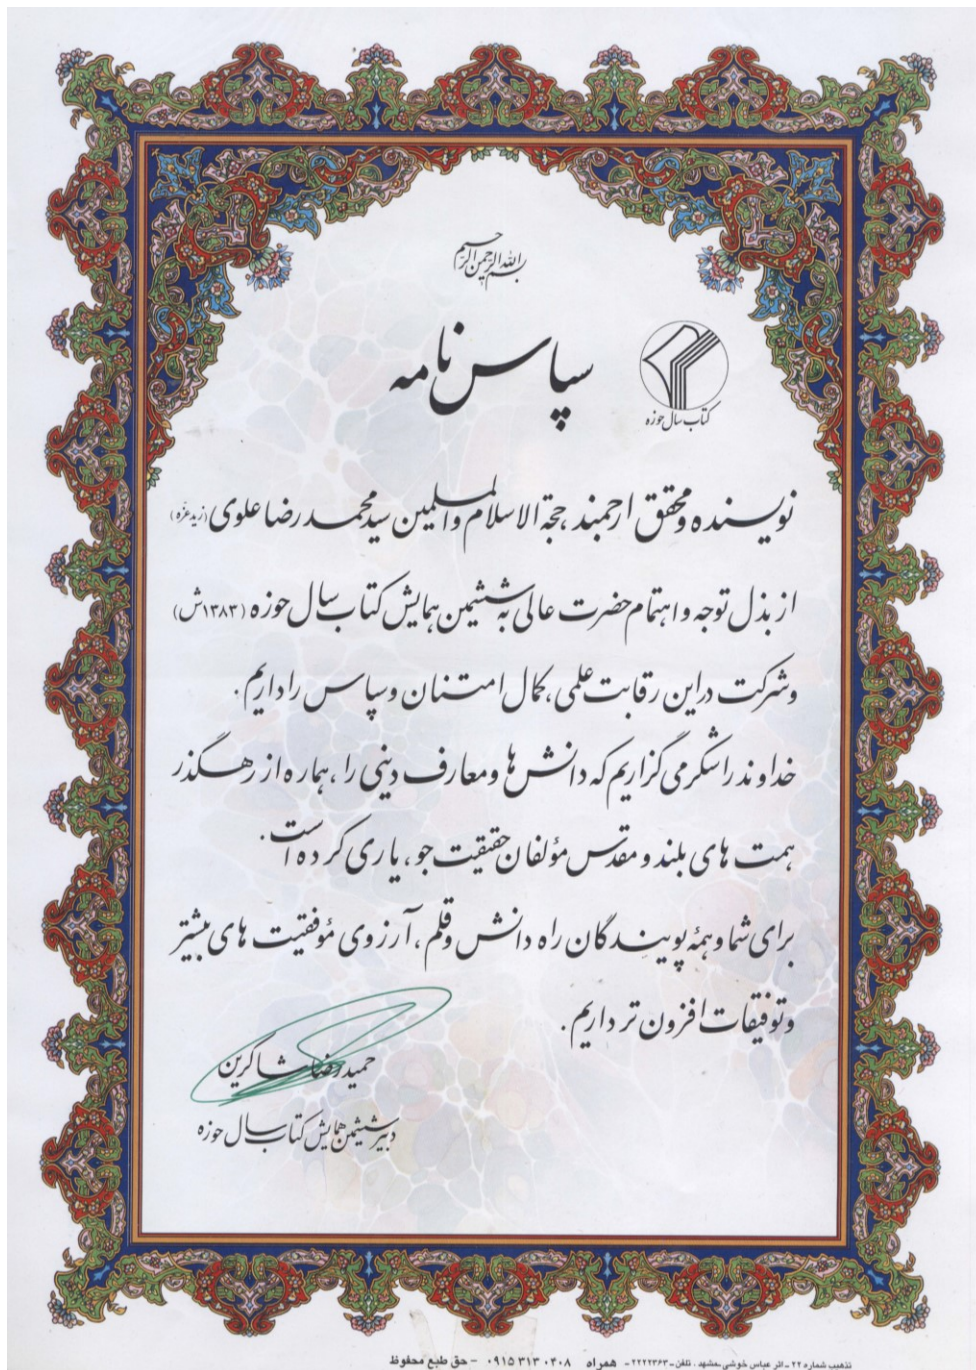 بسم الله الرحمن الرحیم
سپاس نامه
کتاب سال حوزه
نویسنده و محقق ارجمند، حجة الاسلام والمسلمین سید محمد رضا علوی (زید عزه)
از بذل توجه و اهتمام حضرت عالی به ششمین همایش کتاب سال حوزه (۱۳۸۳ش)
و شرکت در این رقابت علمی، کمال امتنان و سپاس را داریم.
خداوند را شکر می گزاریم که دانش ها و معارف دینی را، هماره از رهگذر
همت های بلند و مقدس مؤلفان حقیقت جو، یاری کرده است.
برای شما و همه پویندگان راه دانش و قلم، آرزوی موفقیت های بیشتر
و توفیقات افزون تر داریم.
حمید رضا شاکرین
دبیر ششمین همایش کتاب سال حوزه
تذهیب شماره ۲۲ - اثر عباس خوشی - مشهد . تلفن - ۲۲۲۲۳۶۳ - همراه ۰۹۱۵ ۳۱۳ ۰۴۰۸ - حق طبع محفوظ